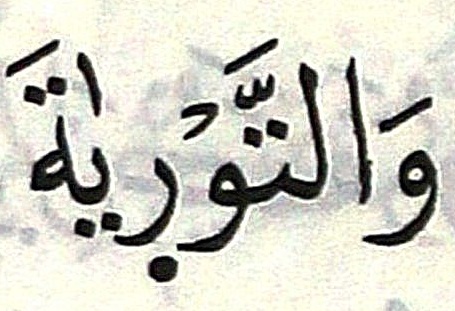 وَالتَّوْر۪يٰةَ